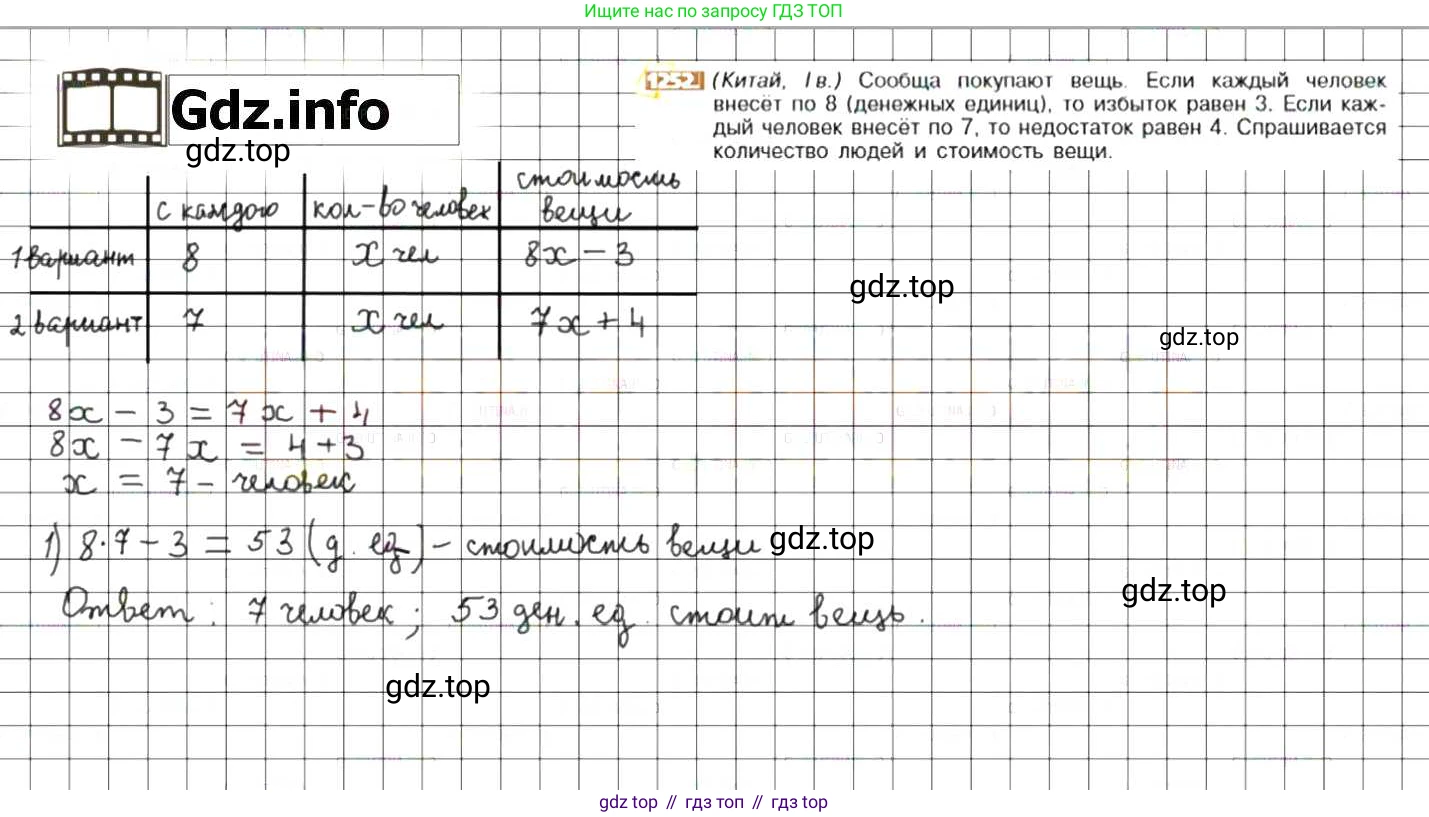 Ищите нас по запросу ГДЗ ТОП
Gdz.info
gdz.top
1252 (Китай, I в.) Сообща покупают вещь. Если каждый человек
внесёт по 8 (денежных единиц), то избыток равен 3. Если каж-
дый человек внесёт по 7, то недостаток равен 4. Спрашивается
количество людей и стоимость вещи.
с каждого кол-во человек стоимость вещи
1 вариант 8 х чел 8х - 3
2 вариант 7 х чел 7х + 4
gdz.top
gdz.top
8х - 3 = 7х + 4
8х - 7х = 4 + 3
х = 7 - человек
1) 8·7 - 3 = 53 (д. ед) - стоимость вещи
gdz.top
gdz.top
Ответ: 7 человек; 53 ден. ед. стоит вещь.
gdz.top
gdz top // гдз топ // gdz top